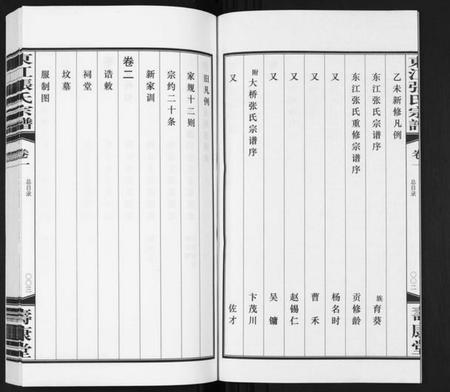 東江張氏宗譜
卷一
总目录
〇〇二
壽康堂
乙未新修凡例
东江张氏宗谱序 族 育葵
东江张氏重修宗谱序 贡修龄
又 杨名时
又 曹禾
又 赵锡仁
又 吴镛
附 大桥张氏宗谱序 卞茂川
又 佐才
旧凡例
家规十二则
宗约二十条
新家训
卷二
诰敕
祠堂
坟墓
服制图
東江張氏宗譜
卷一
总目录
〇〇三
壽康堂